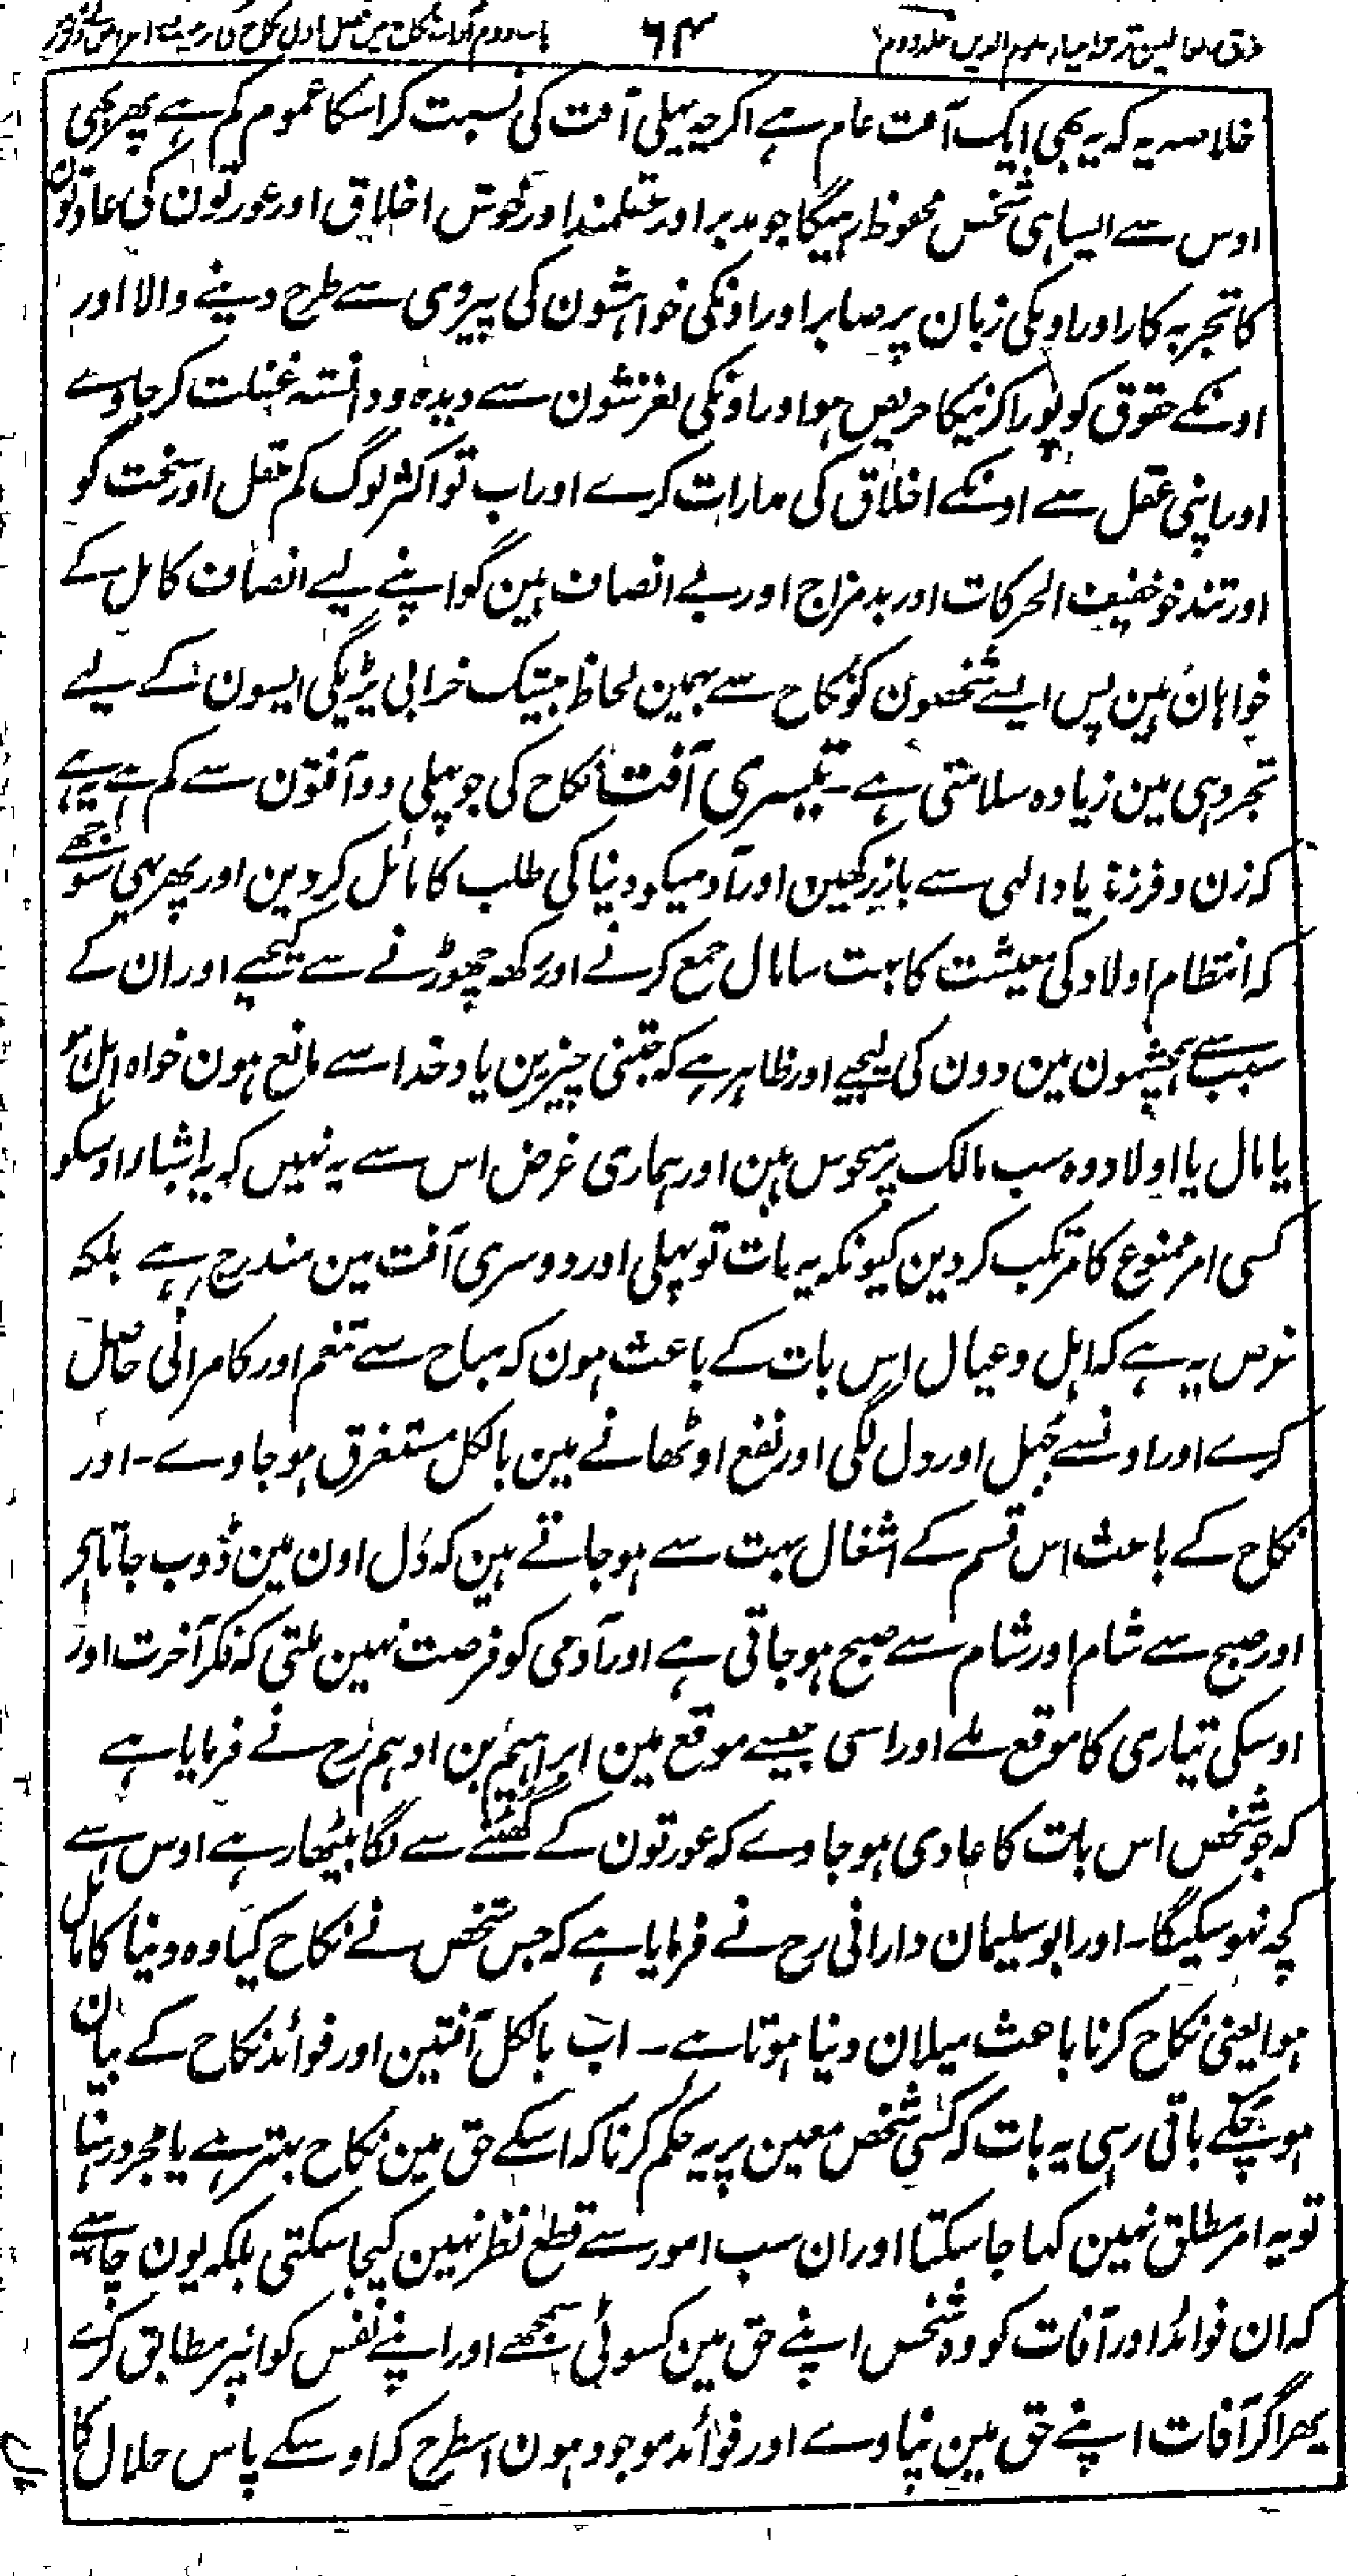 مذاق العارفین ترجمہ احیاء علوم الدین جلد دوم
۶۴
باب دوم آداب نکاح میں فصل اول نکاح کی
خلاصہ یہ کہ یہ بھی ایک آفت عام ہے اگرچہ پہلی آفت کی نسبت کر اسکا عموم کم ہے پھر بھی
اوس سے ایسا ہی شخص محفوظ رہیگا جو مدبر اور عقلمند اور خوش اخلاق اور عورتون کی عادتون
کا تجربہ کار اور اونکی زبان پر صابر اور اونکی خواہشون کی پیروی سے طرح دینے والا اور
اونکے حقوق کو پورا کرنیکا حریص ہو اور اونکی لغزشون سے دیدہ و دانستہ غفلت کر جاوے
اور اپنی عقل سے اونکے اخلاق کی مدارات کرے اور اب تو اکثر لوگ کم عقل اور سخت گو
اور تند خو خفیف الحرکات اور بد مزاج اور بے انصاف ہین گو اپنے لیے انصاف کامل کے
خواہان ہین پس ایسے شخصون کو نکاح سے بہمین لحاظ بیشک خرابی پڑیگی ایسون کے لیے
تجرد ہی مین زیادہ سلامتی ہے ۔ تیسری آفت نکاح کی جو پہلی دو آفتون سے کم ہے یہ ہے
کہ زن و فرزند یاد الہی سے باز رکھین اور آدمیکو دنیا کی طلب کا مائل کردین اور پھر یہی سوجھے
کہ انتظام اولاد کی معیشت کا بہت سا مال جمع کرنے اور رکھ چھوڑنے سے کیجیے اور ان کے
سبب سے ہمچشمون مین دون کی لیجیے اور ظاہر ہے کہ جتنی چیزین یاد خدا سے مانع ہون خواہ اہل ہو
یا مال یا اولاد وہ سب مالک پر منحوس ہین اور ہماری غرض اس سے یہ نہیں کہ یہ اشیا اوسکو
کسی امر ممنوع کا مرتکب کردین کیونکہ یہ بات تو پہلی اور دوسری آفت مین مندرج ہے بلکہ
غرض یہ ہے کہ اہل و عیال اس بات کے باعث ہون کہ مباح سے تنعم اور کامرانی حاصل
کرے اور اونسے چہل اور دل لگی اور نفع اوٹھانے مین بالکل مستغرق ہو جاوے ۔ اور
نکاح کے باعث اس قسم کے اشغال بہت سے ہو جاتے ہین کہ دل اون مین ڈوب جاتا ہے
اور صبح سے شام اور شام سے صبح ہو جاتی ہے اور آدمی کو فرصت نہین ملتی کہ فکر آخرت اور
اوسکی تیاری کا موقع ملے اور اسی جیسے موقع مین ابراہیم بن ادہم رح نے فرمایا ہے
کہ جو شخص اس بات کا عادی ہو جاوے کہ عورتون کے گھٹنے سے لگا بیٹھا رہے اوس سے
کچھ نہو سکیگا ۔ اور ابو سلیمان دارانی رح نے فرمایا ہے کہ جس شخص نے نکاح کیا وہ دنیا کا مائل
ہوا یعنی نکاح کرنا باعث میلان دنیا ہوتا ہے ۔ اب بالکل آفتین اور فوائد نکاح کے بیان
ہو چکے باقی رہی یہ بات کہ کسی شخص معین پر یہ حکم کرنا کہ اسکے حق مین نکاح بہتر ہے یا مجرد رہنا
تو یہ امر مطلق نہین کہا جا سکتا اور ان سب امور سے قطع نظر نہین کیجا سکتی بلکہ یون چاہیے
کہ ان فوائد اور آفات کو وہ شخص اپنے حق مین کسوٹی سمجھے اور اپنے نفس کو انپر مطابق کرے
پھر اگر آفات اپنے حق مین نپاوے اور فوائد موجود ہون اسطرح کہ اوسکے پاس حلال کا
مال